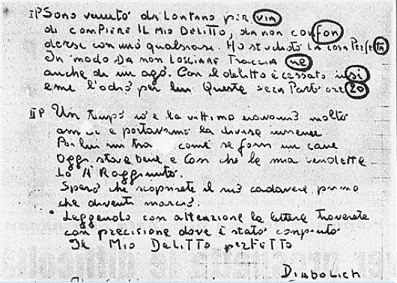 I P Sono venuto da Lontano per via
di compiere IL mio Delitto, da non confon
dersi con uno qualsiasi. Ho studiato la cosa Perfetta
In modo Da non Lasciare Traccia ne
anche di un ago. Con il delitto è cessato in si
eme l'odio per lui. Questa sera Parto ore 20
II P Un tempo io e la vittima eravamo molto
amici e portavamo la divisa insieme
Poi lui mi ha come se fossi un cane
Oggi stava bene e Con che la mia vendetta
Lo A Raggiunto.
Spero che scoprirete il suo cadavere prima
che diventi marcio.
Leggendo con attenzione la lettera troverete
con precisione dove è stato compiuto
Il Mio DELITTO perfetto
Diabolich